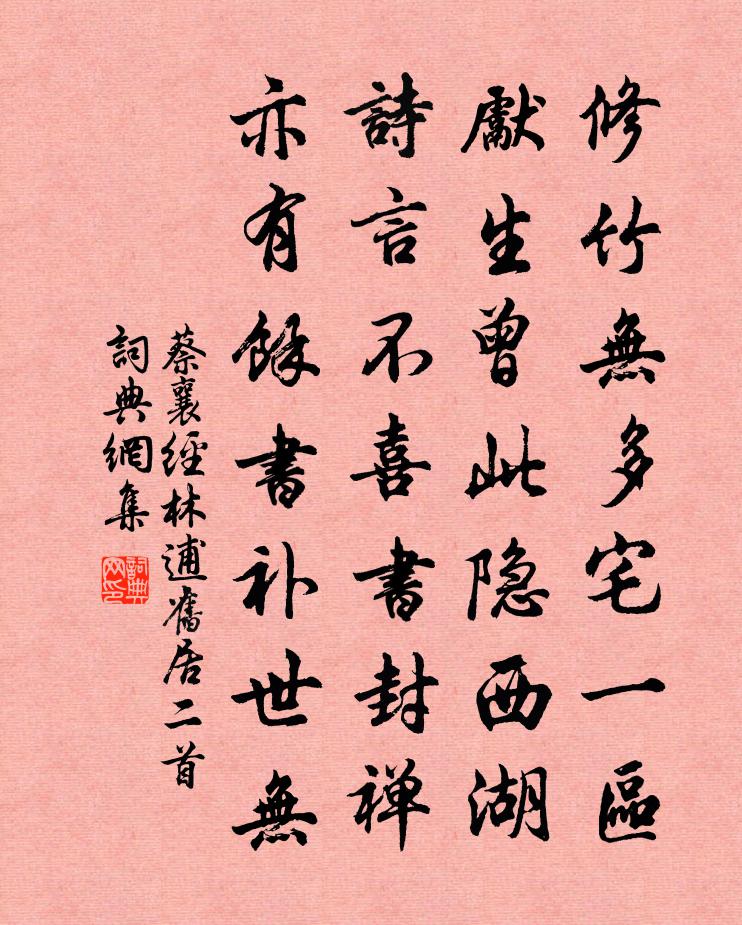 修竹無多宅一區
獻生曾此隐西湖
詩言不喜書封禅
亦有餘書补世無
蔡襄經林逋舊居二首
詞典網集
詞典网印